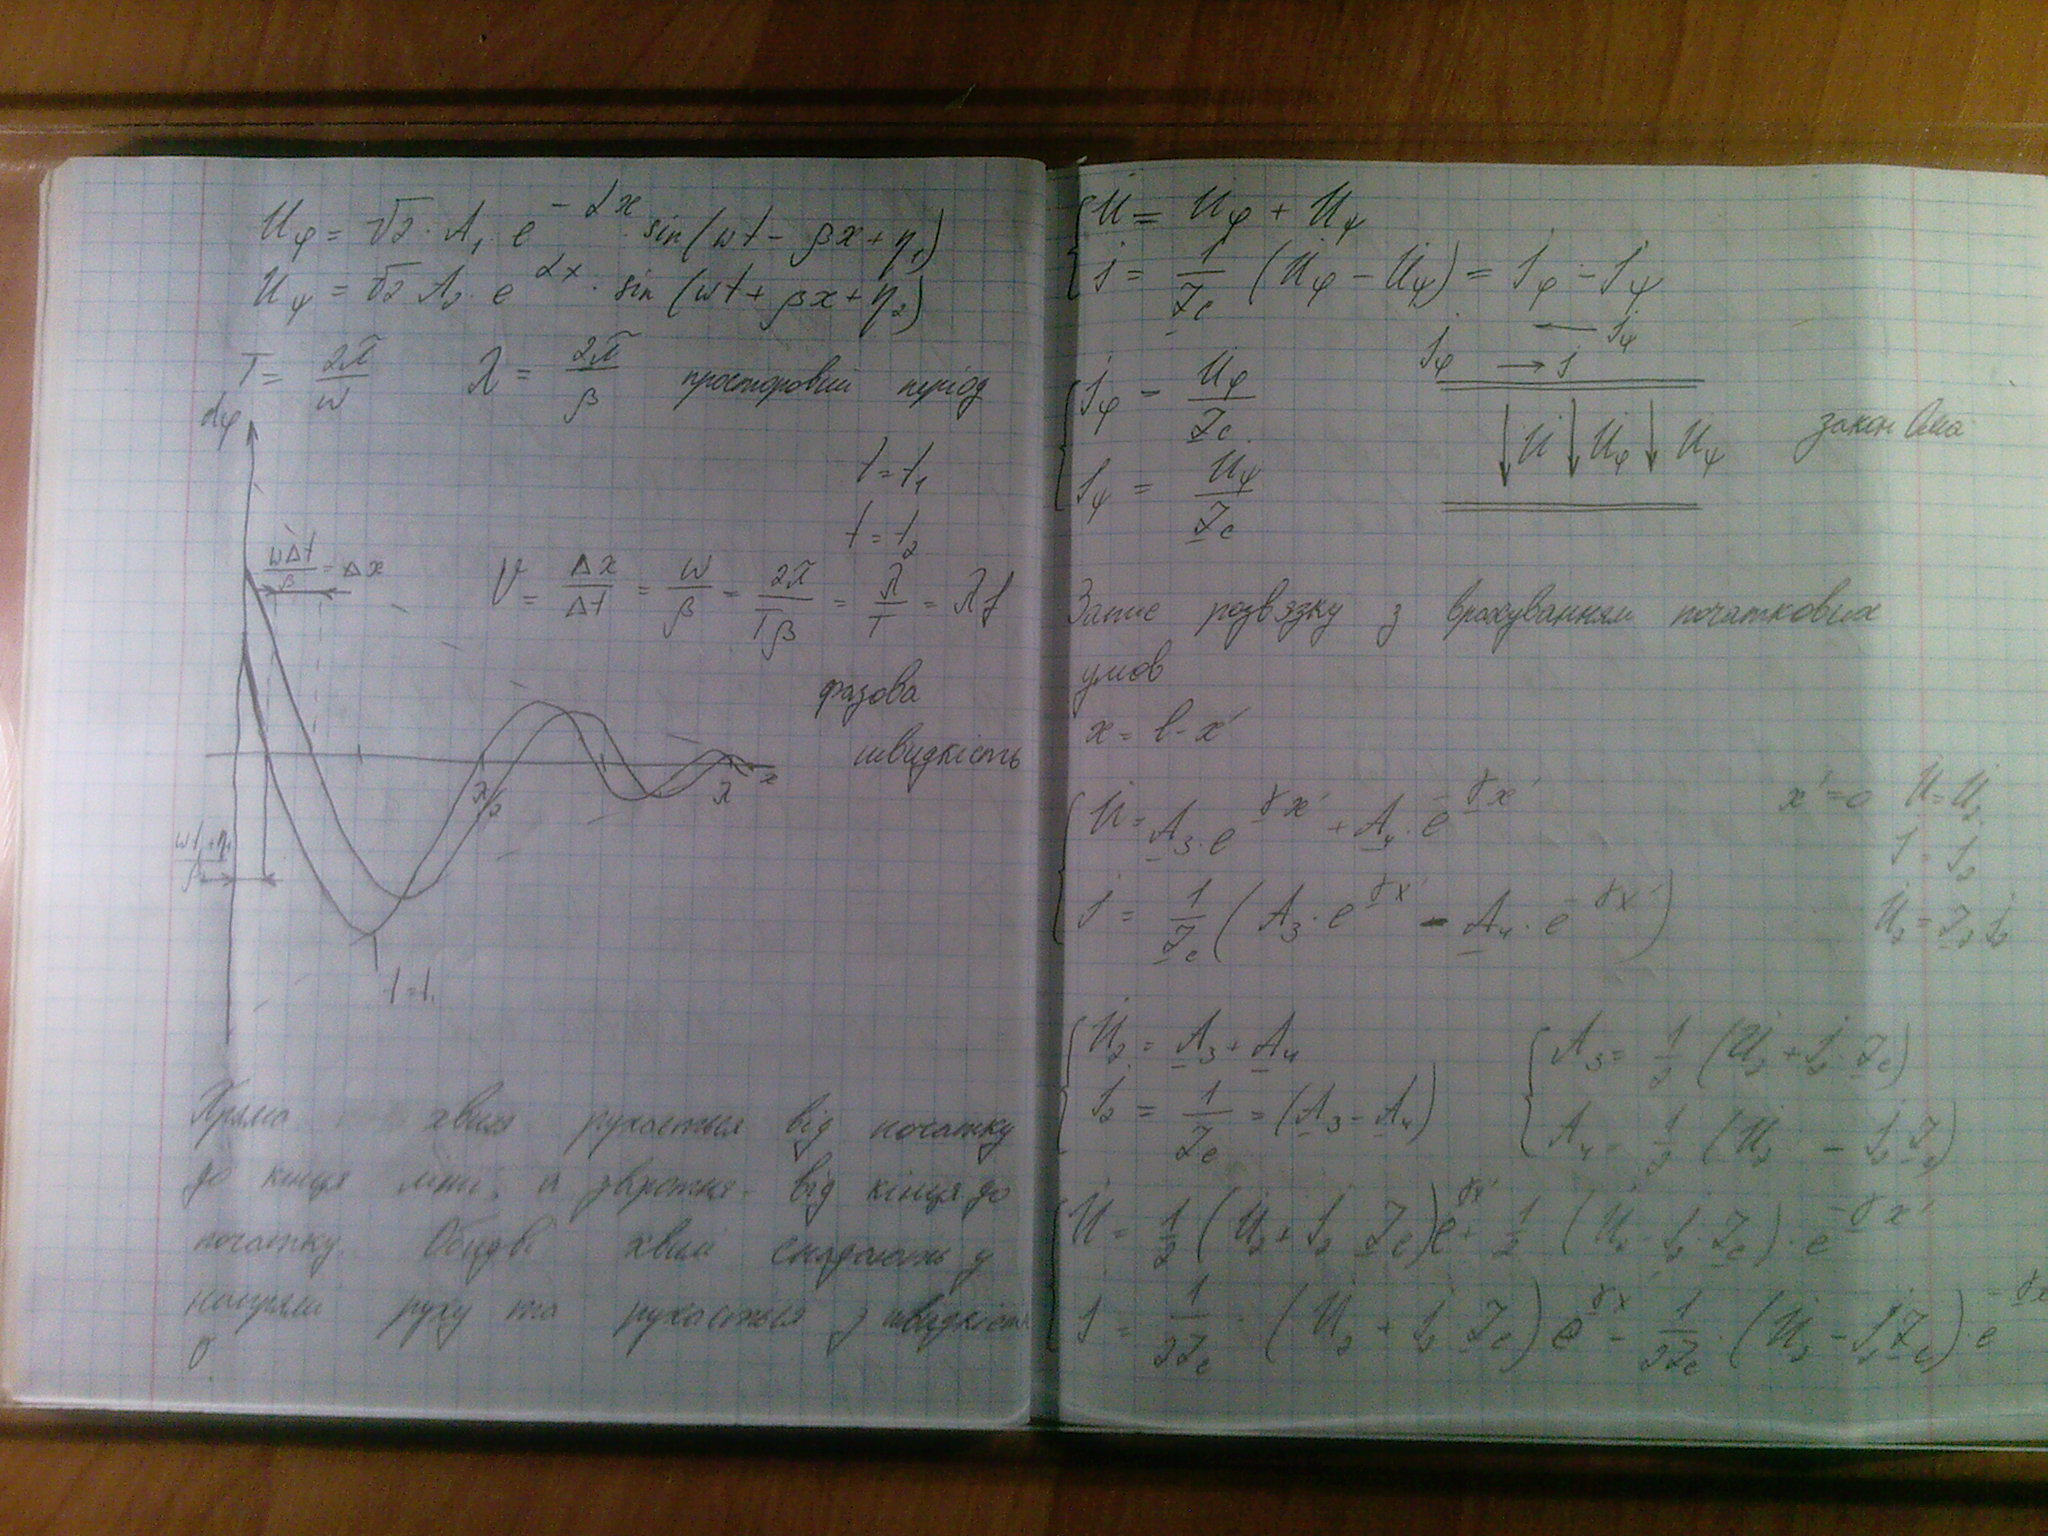 u_φ = √2 · A₁ e^(-αx) · sin(ωt - βx + η₁)
u_ψ = √2 A₂ · e^(αx) · sin(ωt + βx + η₂)
T = 2π/ω λ = 2π/β просторовий період
t = t₁
t = t₂
ωΔt/β = Δx
V = Δx/Δt = ω/β = 2π/Tβ = λ/T = λf
фазова
швидкість
λ/2 λ x
ωt₁+η₁/β
t = t₁
Пряма хвиля рухається від початку
до кінця лінії, а зворотня - від кінця до
початку. Обидві хвилі спадають у
напрямі руху та рухається з швидкістю
υ
U̇ = U̇_φ + U̇_ψ
İ = 1/Z_c (U̇_φ - U̇_ψ) = İ_φ - İ_ψ
İ_φ → İ ← İ_ψ
İ_φ = U̇_φ/Z_c
İ_ψ = U̇_ψ/Z_c
↓U̇ ↓U̇_φ ↓U̇_ψ закон Ома
Запис розвязку з врахуванням початкових
умов
x = l - x'
U̇ = A₃ · e^(γx') + A₄ · e^(-γx') x' = 0 U̇ = U̇₂
İ = İ₂
İ = 1/Z_c (A₃ · e^(γx') - A₄ · e^(-γx')) U̇₂ = Z₂ İ₂
U̇₂ = A₃ + A₄ A₃ = 1/2 (U̇₂ + İ₂ · Z_c)
İ₂ = 1/Z_c = (A₃ - A₄) A₄ = 1/2 (U̇₂ - İ₂ Z_c)
U̇ = 1/2 (U̇₂ + İ₂ Z_c) e^(γx') + 1/2 (U̇₂ - İ₂ · Z_c) · e^(-γx')
İ = 1/2Z_c · (U̇₂ + İ₂ Z_c) e^(γx') - 1/2Z_c · (U̇₂ - İ₂ Z_c) · e^(-γx')